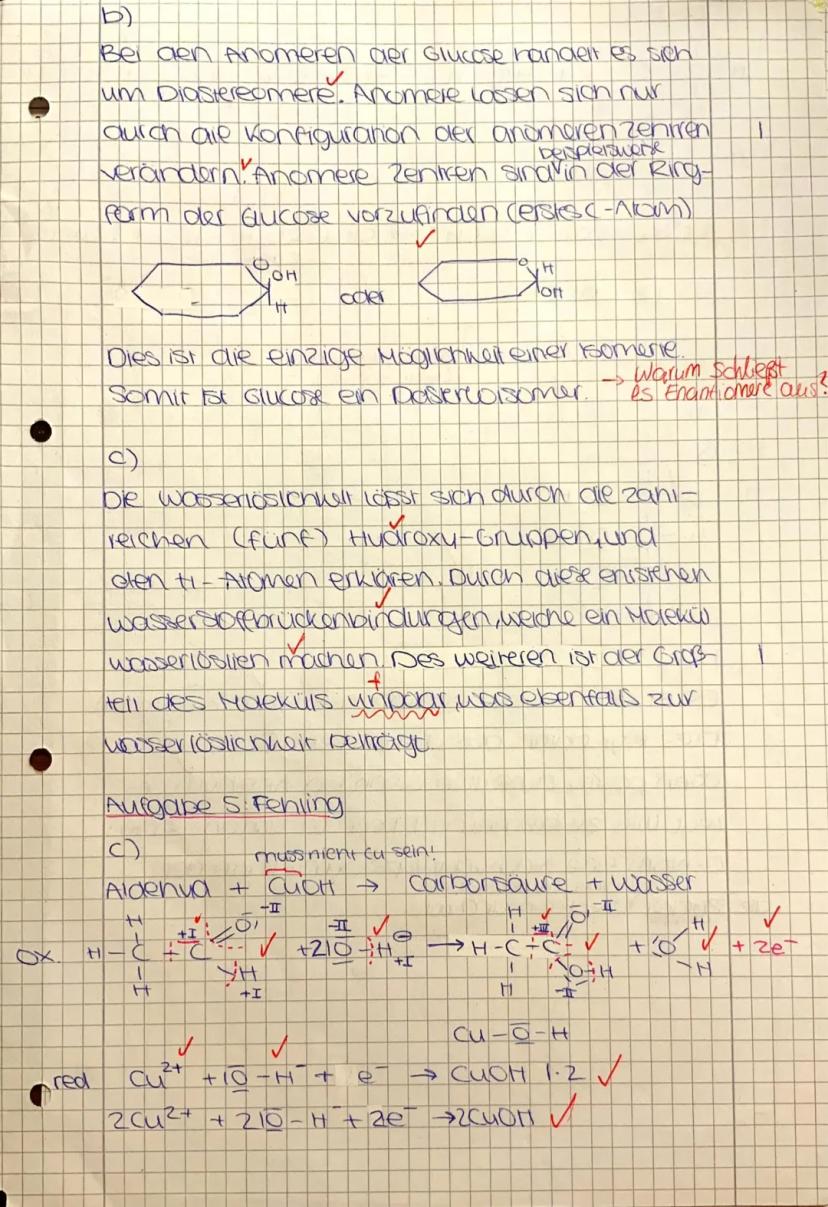 b)
Bei den Anomeren der Glucose handelt es sich
um Diastereomere. Anomere lassen sich nur
durch die Konfiguration der anomeren Zentren
verändern. Anomere Zentren sind in der Ring-
beispielsweise
form der Glucose vorzufinden (erstes C-Atom)
O OH
H
oder
O H
OH
Dies ist die einzige Möglichkeit einer Isomerie.
Somit ist Glucose ein Diasteroisomer. → Warum schließt
es Enantiomere aus?
1
c)
Die Wasserlöslichkeit lässt sich durch die zahl-
reichen (fünf) Hydroxy-Gruppen, und
den H-Atomen erklären. Durch diese entstehen
Wasserstoffbrückenbindungen, welche ein Molekül
wasserlöslich machen. Des weiteren ist der Groß- 1
f
teil des Moleküls unpolar, was ebenfalls zur
Wasserlöslichkeit beiträgt.
Aufgabe 5: Fehling
c) muss nicht Cu sein!
Aldehyd + CuOH → Carbonsäure + Wasser
Ox. H-C-C O H +I -II H H +I + 2 O-H ⊖ -II +I → H-C-C O O-H H H +III -II -II + O H H + 2e⁻
Cu-O-H
red Cu²⁺ + O-H⁻ + e⁻ → CuOH |·2
2Cu²⁺ + 2 O-H⁻ + 2e⁻ → 2CuOH